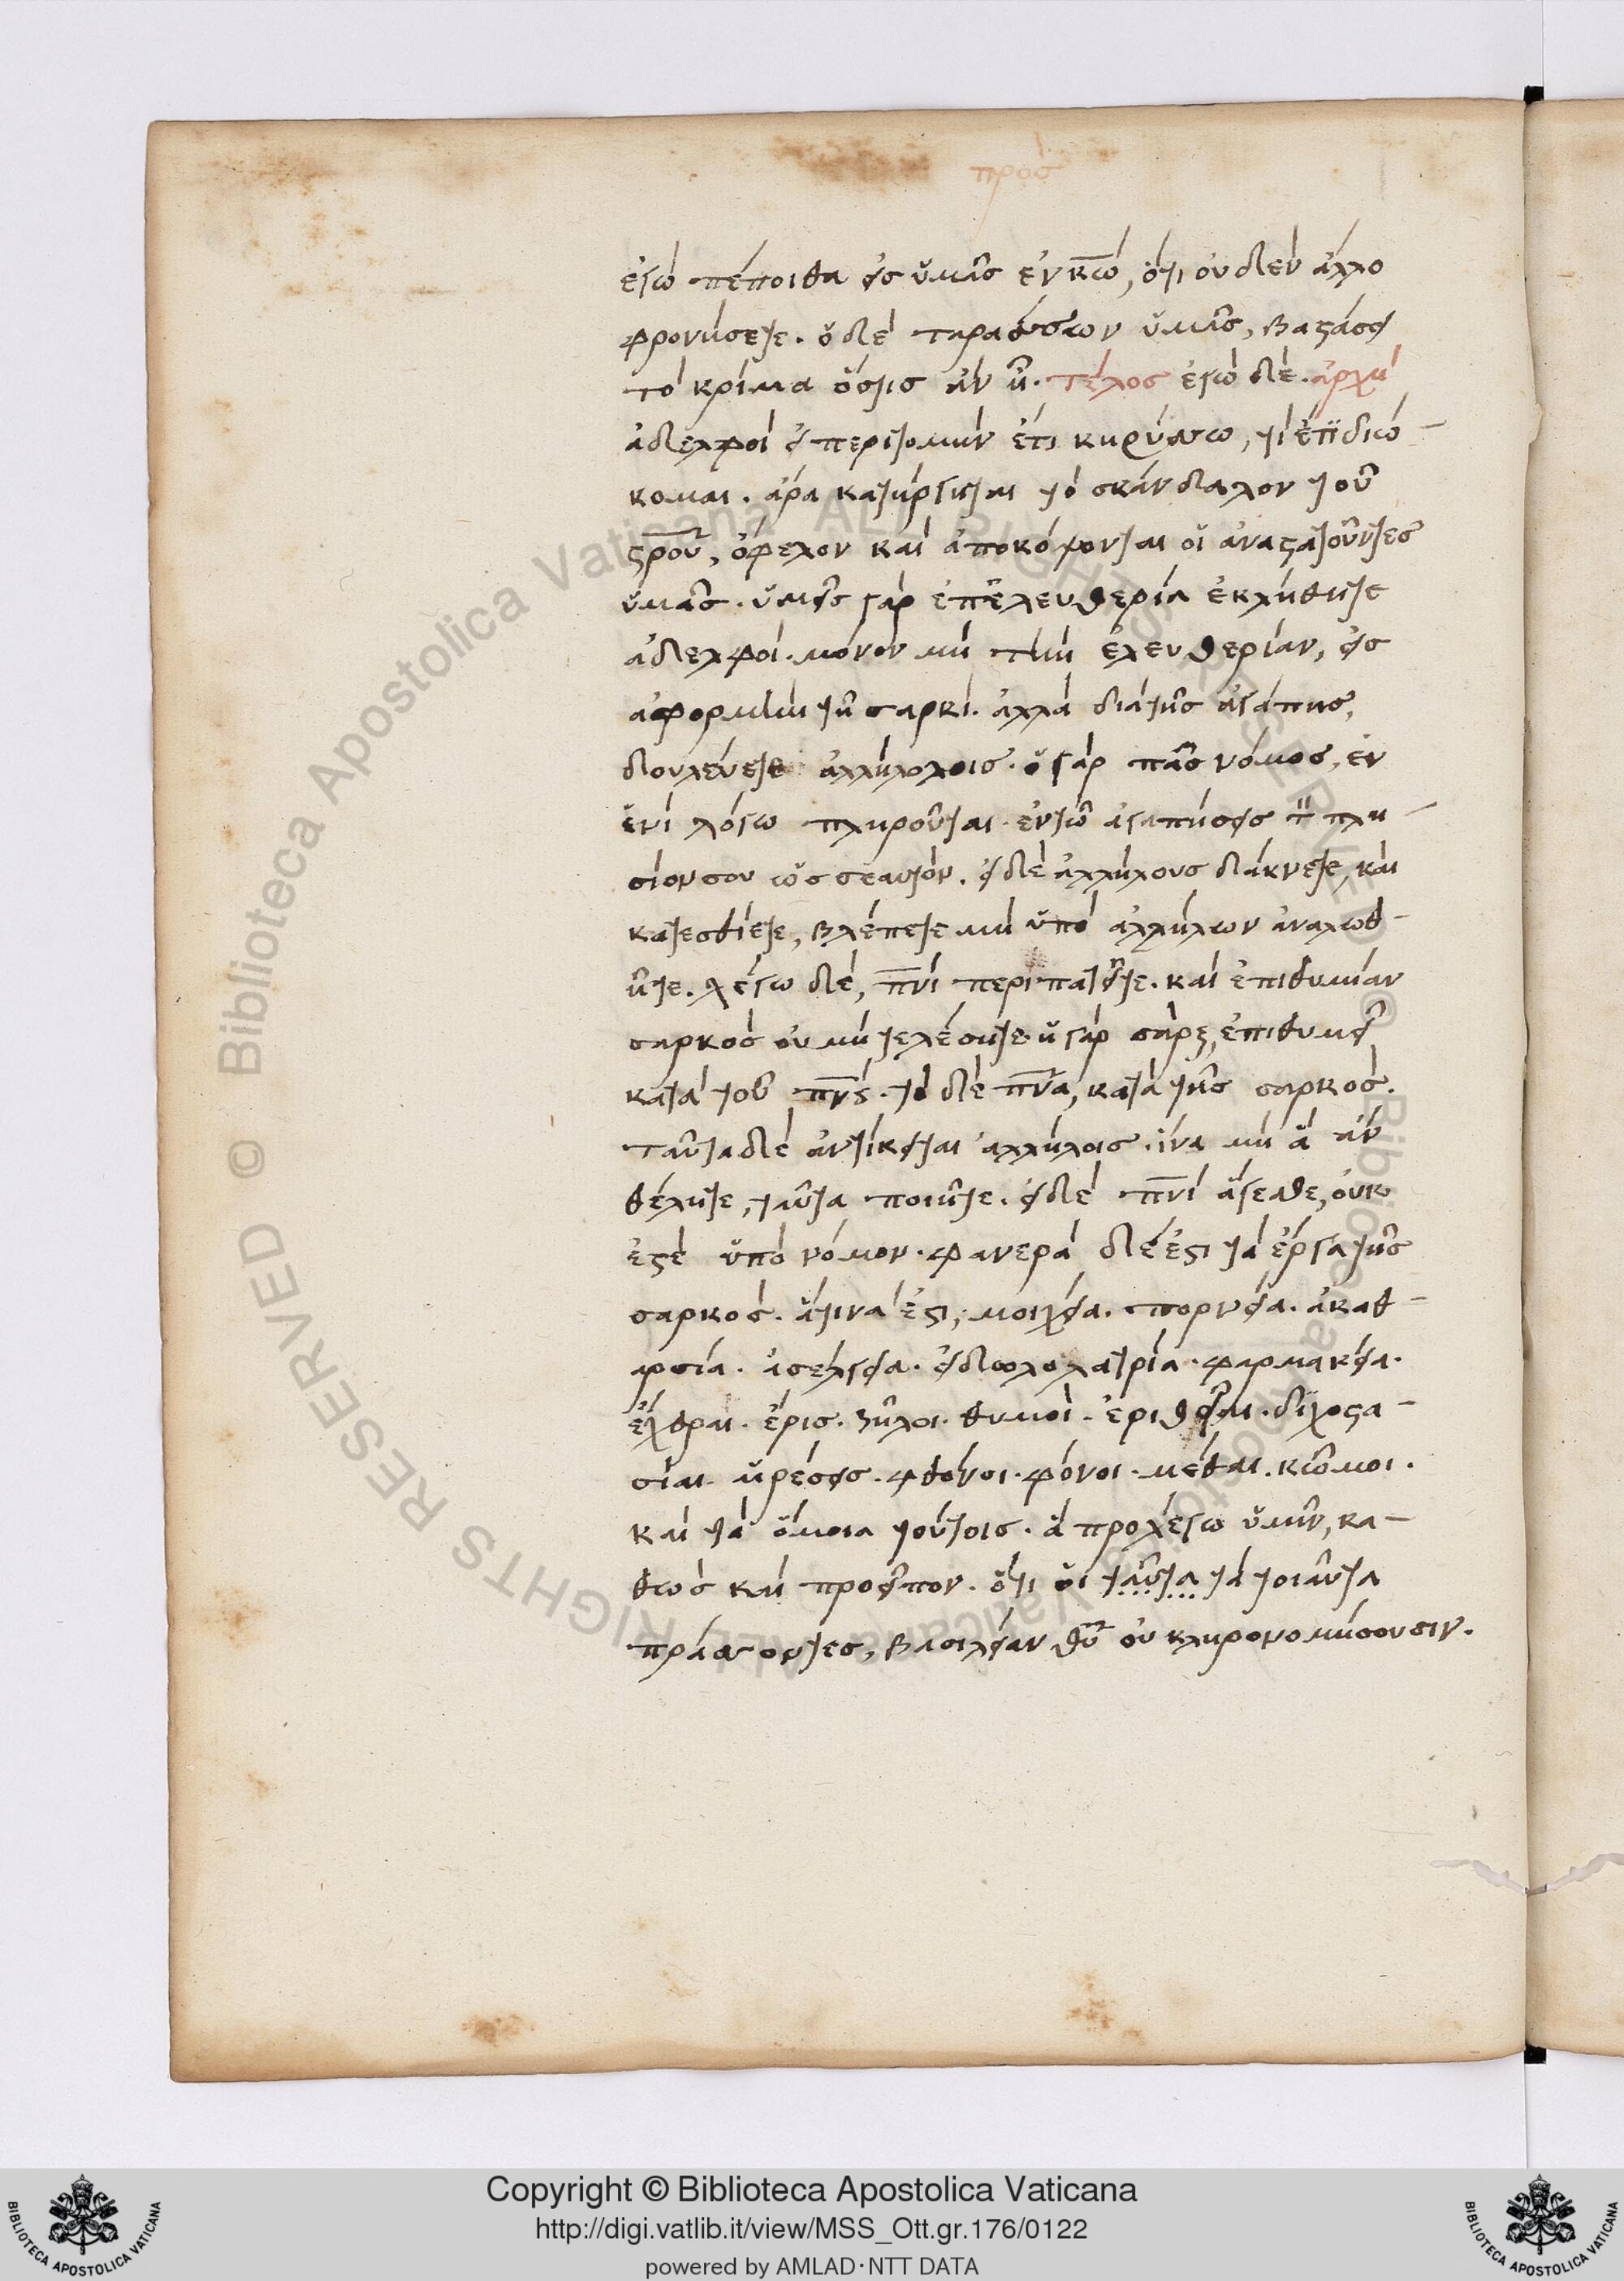 πρὸσ
ἐγὼ πέποιθα εἰς ὑμᾶσ ἐν κ̅ω̅, ὅτι οὐδὲν ἄλλο
φρονήσετε. ὁ δὲ ταράσσων ὑμᾶσ, βαστάσει
τὸ κρίμα ὅστισ ἂν ἦ. τέλοσ ἐγὼ δὲ. ἀρχὴ
ἀδελφοὶ εἰ περιτομὴν ἔτι κηρύσσω, τί ἔτϊ διώ-
κομαι. ἄρα κατήργηται τὸ σκάνδαλον τοῦ
σ̅ρ̅ο̅ῦ̅, ὄφελον καὶ ἀποκόψονται οἱ ἀναστατοῦντεσ
ὑμᾶσ. ὑμεῖς γὰρ ἐπ' ἐλευθερία ἐκλήθητε
ἀδελφοί. μόνον μὴ τὴν ἐλευθερίαν, εἰς
ἀφορμὴν τῆ σαρκὶ. ἀλλὰ διὰ τῆσ ἀγάπησ,
δουλεύετε ἀλλήλοχοισ. ὁ γὰρ πᾶσ νόμοσ, ἐν
ἑνὶ λόγω πληροῦται. ἐν τῶ ἀγαπήσεις τ̏ πλη-
σίον σου ὡσ σεαυτόν. εἰ δὲ ἀλλήλουσ δάκνετε, καὶ
κατεσθίετε, βλέπετε μὴ ὑπὸ ἀλλήλων ἀναλωθ-
ῆτε. λέγω δὲ, π̅ν̅ὶ περιπατεῖτε. καὶ ἐπιθυμίαν
σαρκὸσ οὐ μὴ τελέσητε. ἡ γὰρ σὰρξ, ἐπιθυμεῖ
κατὰ τοῦ π̅ν̅ς. τὸ δὲ π̅ν̅α, κατὰ τῆσ σαρκόσ.
ταῦτα δὲ ἀντίκειται ἀλλήλοισ. ἵνα μὴ ἃ ἂν
θέλητε, ταῦτα ποιῆτε. εἰ δὲ π̅ν̅ὶ ἄγεσθε, οὐκ
ἐστὲ ὑπὸ νόμον. φανερὰ δέ ἐστι τὰ ἔργα τῆσ
σαρκὸσ. ἅτινα ἐστι, μοιχεία. πορνεία. ἀκαθ-
αρσία. ἀσέλγεια. εἰδωλολατρία. φαρμακεία.
ἔχθραι. ἔρισ. ζῆλοι. θυμοὶ. ἐριθεῖαι. διχοστα-
σίαι. αἱρέσεις. φθόνοι. φόνοι. μέθαι. κῶμοι.
καὶ τὰ ὅμοια τούτοισ. ἃ προλέγω ὑμῖν, κα-
θὼσ καὶ προεῖπον. ὅτι οἱ ταῦτα τὰ τοιαῦτα
πράσσοντεσ, βασιλείαν θ̅ῦ̅ οὐ κληρονομήσουσιν.
Copyright © Biblioteca Apostolica Vaticana
http://digi.vatlib.it/view/MSS_Ott.gr.176/0122
powered by AMLAD·NTT DATA
BIBLIOTECA APOSTOLICA VATICANA
BIBLIOTECA APOSTOLICA VATICANA
© Biblioteca Apostolica Vaticana ALL RIGHTS RESERVED © Biblioteca Apostolica Vaticana ALL RIGHTS RESERVED